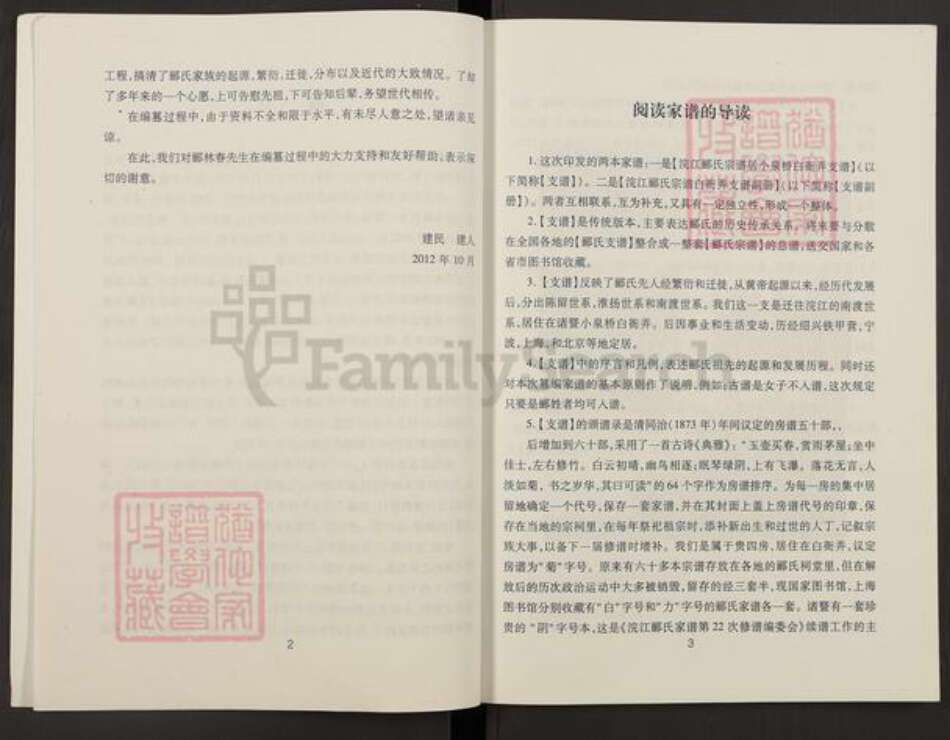 工程,搞清了郦氏家族的起源,繁衍,迁徙,分布以及近代的大致情况。了却
了多年来的一个心愿,上可告慰先祖,下可告知后辈,务望世代相传。
在编纂过程中,由于资料不全和限于水平,有未尽人意之处,望请亲见
谅。
在此,我们对郦林春先生在编纂过程中的大力支持和友好帮助,表示深
切的谢意。
建民 建人
2012年10月
2
阅读家谱的导读
1.这次印发的两本家谱:一是【浣江郦氏宗谱居小泉桥白衙弄支谱】(以
下简称【支谱】)。二是【浣江郦氏宗谱白衙弄支谱副册】(以下简称【支谱副
册】)。两者互相联系,互为补充,又具有一定独立性,形成一个整体。
2.【支谱】是传统版本,主要表达郦氏的历史传承关系。将来要与分散
在全国各地的【郦氏支谱】整合成一整套【郦氏宗谱】的总谱,送交国家和各
省市图书馆收藏。
3.【支谱】反映了郦氏先人经繁衍和迁徙,从黄帝起源以来,经历代发展
后,分出陈留世系,淮扬世系和南渡世系。我们这一支是迁往浣江的南渡世
系,居住在诸暨小泉桥白衙弄。后因事业和生活变动,历经绍兴铁甲营,宁
波,上海,和北京等地定居。
4.【支谱】中的序言和凡例,表述郦氏祖先的起源和发展历程。同时还
对本次纂编家谱的基本原则作了说明,例如:古谱是女子不入谱,这次规定
只要是郦姓者均可入谱。
5.【支谱】的颁谱录是清同治(1873年)年间议定的房谱五十部,,
后增加到六十部,采用了一首古诗《典雅》:"玉壶买春,赏雨茅屋;坐中
佳士,左右修竹。白云初晴,幽鸟相逐;眠琴绿阴,上有飞瀑。落花无言,人
淡如菊,书之岁华,其曰可读"的64个字作为房谱排序。为每一房的集中居
留地确定一个代号,保存一套家谱,并在其封面上盖上房谱代号的印章,保
存在当地的宗祠里,在每年祭祀祖宗时,添补新出生和过世的人丁,记叙宗
族大事,以备下一届修谱时增补。我们是属于贵四房,居住在白衙弄,议定
房谱为"菊"字号。原来有六十多本宗谱存放在各地的郦氏祠堂里,但在解
放后的历次政治运动中大多被销毁,留存的经三套半,现国家图书馆,上海
图书馆分别收藏有"白"字号和"力"字号的郦氏家谱各一套。诸暨有一套珍
贵的"阴"字号本,这是《浣江郦氏家谱第22次修谱编委会》续谱工作的主
3
FamilySearch